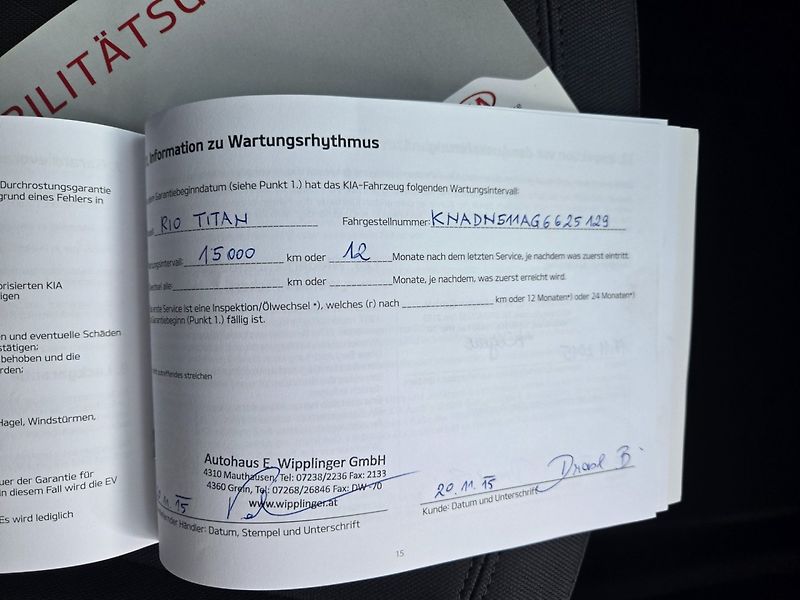 BILITÄTSG
KIA
Durchrostungsgarantie
grund eines Fehlers in
orisierten KIA
igen
n und eventuelle Schäden
stätigen;
behoben und die
rden;
Hagel, Windstürmen,
uer der Garantie für
n diesem Fall wird die EV
Es wird lediglich
Information zu Wartungsrhythmus
Garantiebeginndatum (siehe Punkt 1.) hat das KIA-Fahrzeug folgenden Wartungsintervall:
RIO TITAN Fahrgestellnummer: KNADN511AG6625129
ungsintervall: 15000 km oder 12 Monate nach dem letzten Service, je nachdem was zuerst eintritt.
echsel alle km oder Monate, je nachdem, was zuerst erreicht wird.
erste Service ist eine Inspektion/Ölwechsel *), welches (r) nach km oder 12 Monaten*) oder 24 Monaten*)
Garantiebeginn (Punkt 1.) fällig ist.
zutreffendes streichen
Autohaus E. Wipplinger GmbH
4310 Mauthausen, Tel: 07238/2236 Fax: 2133
4360 Grein, Tel: 07268/26846 Fax: DW -70
www.wipplinger.at
.11.15
ender Händler: Datum, Stempel und Unterschrift
20.11.15
Kunde: Datum und Unterschrift
15